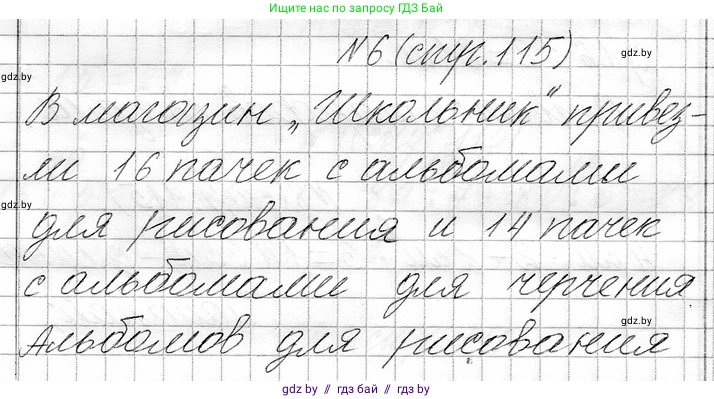 Ищите нас по запросу ГДЗ Бай
№6 (стр. 115)
gdz.by
gdz.by
В магазин „Школьник“ привез-
ли 16 пачек с альбомами
gdz.by
для рисования и 14 пачек
с альбомами для черчения
gdz.by
Альбомов для рисования
gdz.by // гдз бай // гдз by